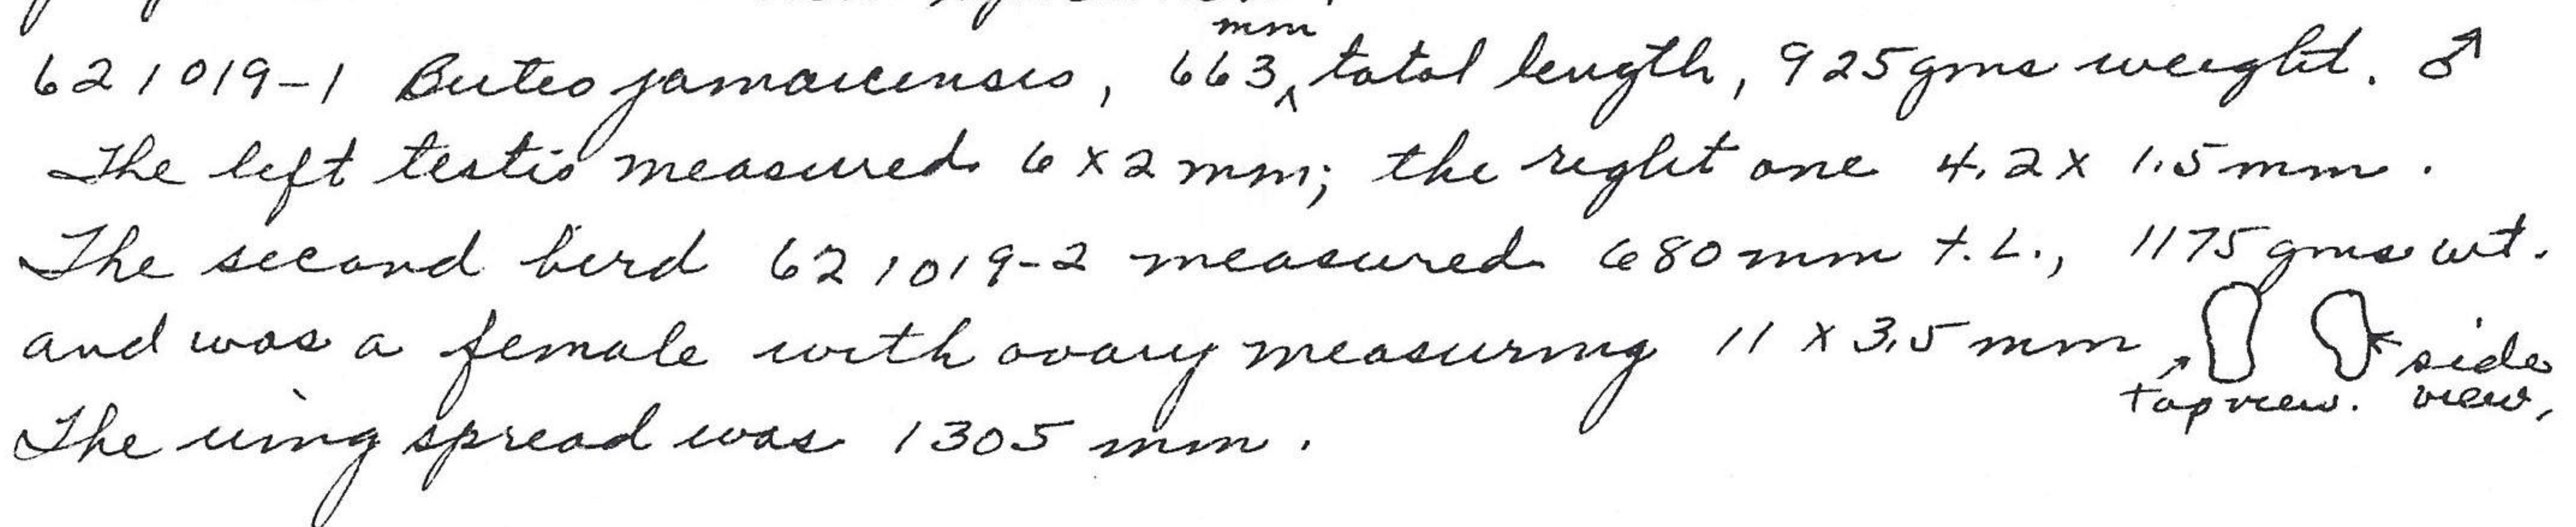 621019-1 Buteo jamaicensis, 663 mm total length, 925 gms weight. ♂
The left testis measured 6 x 2 mm; the right one 4.2 x 1.5 mm.
The second bird 621019-2 measured 680 mm t.L., 1175 gms wt.
and was a female with ovary measuring 11 x 3.5 mm
top view. side view.
The wing spread was 1305 mm.